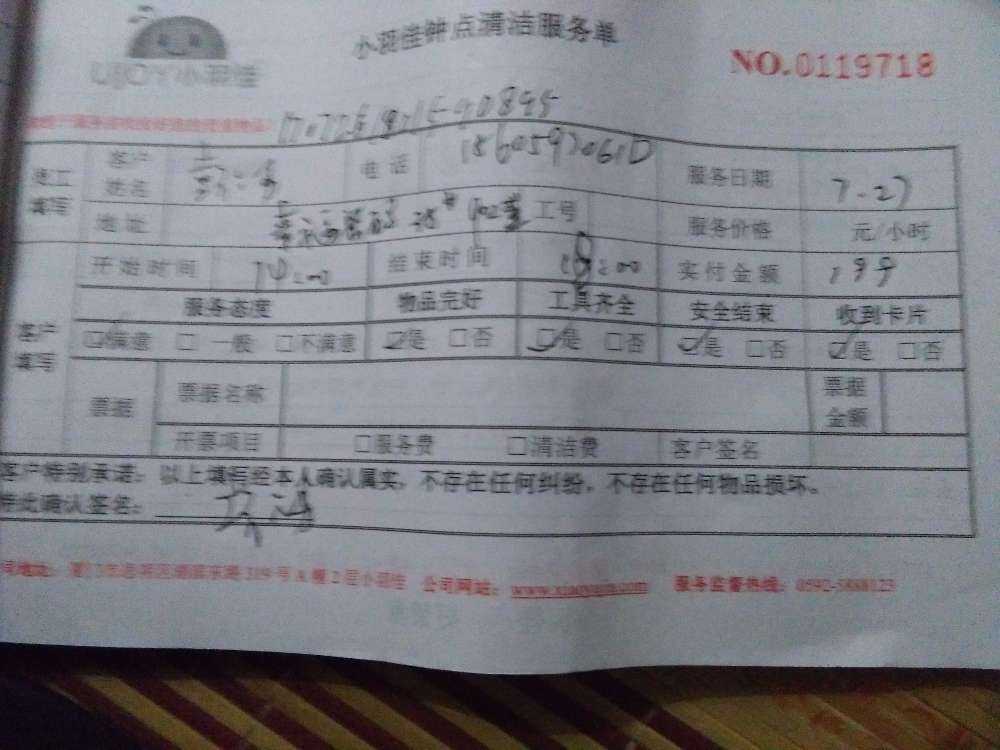 UJOY小羽佳
小羽佳钟点清洁服务单
NO.0119718
员工填写
客户姓名
电话
服务日期
7.27
地址
工号
服务价格
元/小时
开始时间
14:00
结束时间
18:00
实付金额
199
客户填写
服务态度
物品完好
工具齐全
安全结束
收到卡片
☑满意 □一般 □不满意
☑是 □否
☑是 □否
☑是 □否
☑是 □否
票据
票据名称
票据金额
开票项目
□服务费
□清洁费
客户签名
客户特别承诺：以上填写经本人确认属实，不存在任何纠纷，不存在任何物品损坏。
特此确认签名：
公司地址：厦门市思明区湖滨东路319号A幢2层小羽佳 公司网站：www.xiaoyujia.com 服务监督热线：0592-5888123